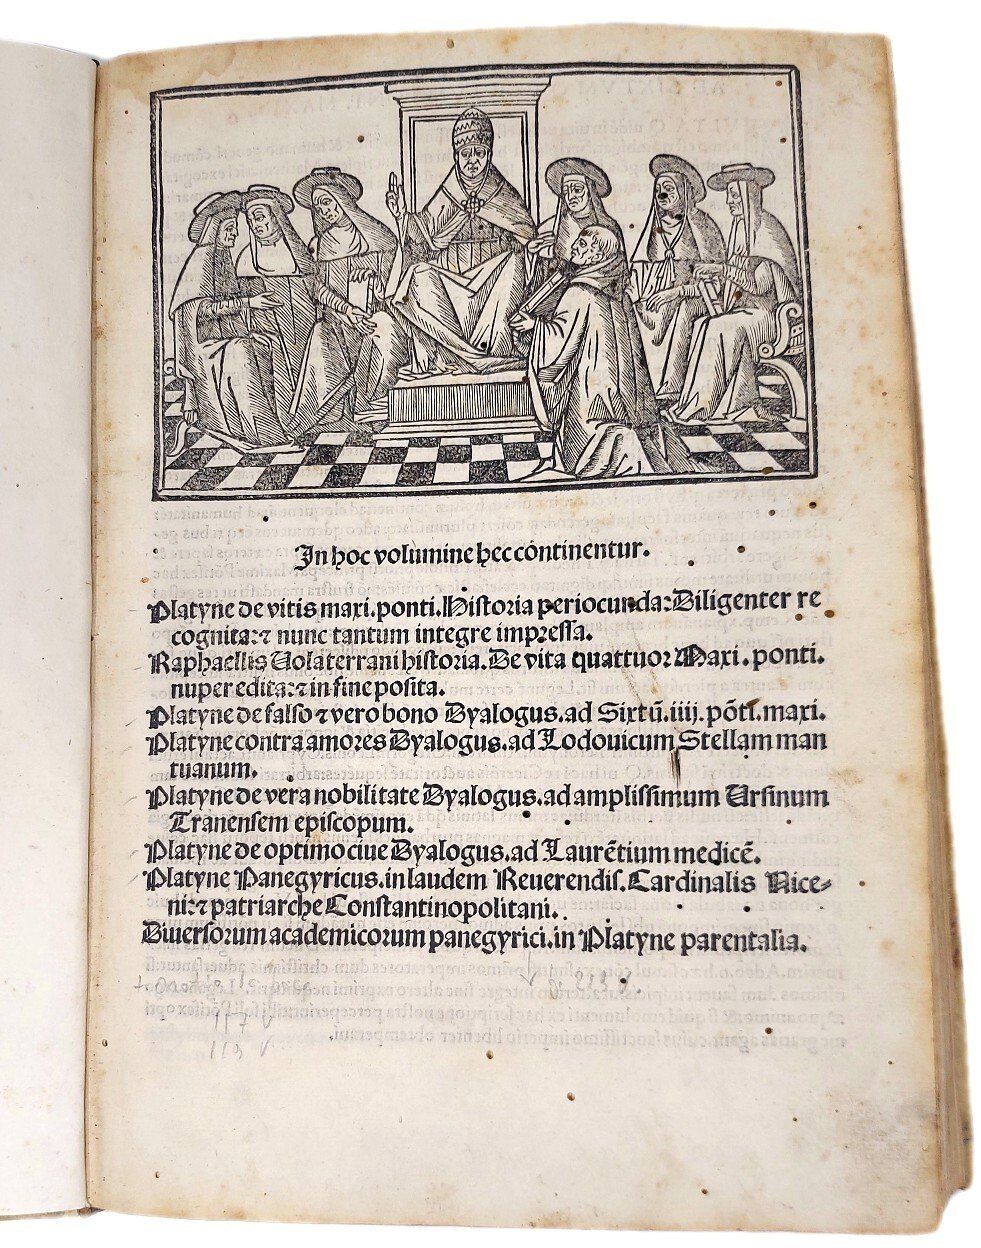 In hoc volumine hec cōntinentur.
Platyne de vitis maxi. ponti. Historia periocunda: Diligenter re
cognita: ⁊ nunc tantum integre impressa.
Raphaellis Volaterrani historia. De vita quattuor Maxi. ponti.
nuper edita: ⁊ in fine posita.
Platyne de falso ⁊ vero bono Dyalogus. ad Sixtū. iiij. pōti. maxi.
Platyne contra amores Dyalogus. ad Lodouicum Stellam man
tuanum.
Platyne de vera nobilitate Dyalogus. ad amplissimum Ursinum
Tranensem episcopum.
Platyne de optimo ciue Dyalogus. ad Laurētium medicē.
Platyne Panegyricus. in laudem Reuerendis. Cardinalis Nice-
ni: ⁊ patriarche Constantinopolitani.
Diuersorum academicorum panegyrici. in Platyne parentalia.